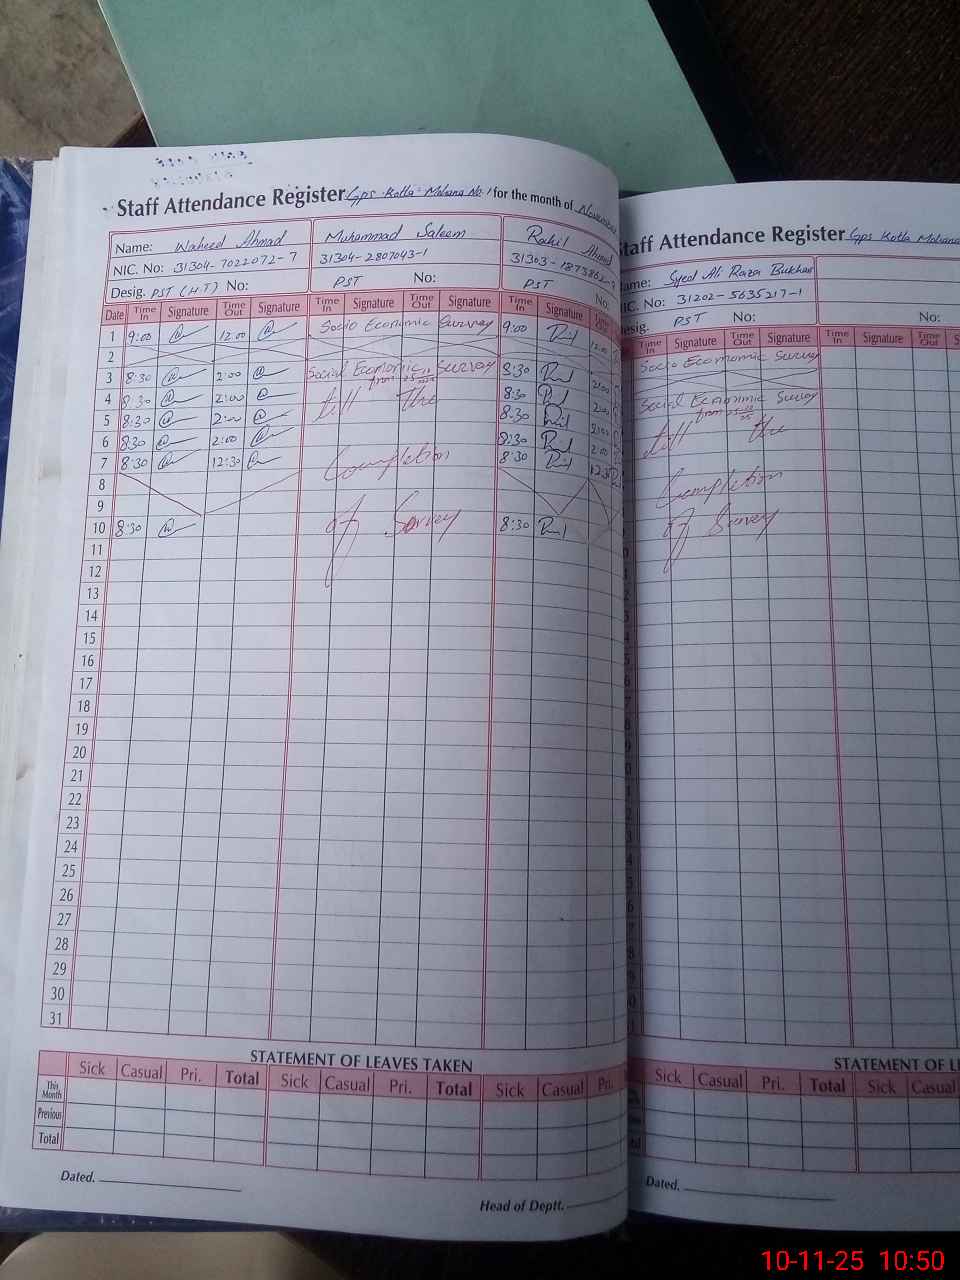 Staff Attendance Register Gps Kotla Mohana No. 1 for the month of November
Name: Waheed Ahmad Muhammad Saleem Rahil Ahmad
NIC. No: 31304-7022072-7 31304-2807043-1 31303-
Desig. PST (H.T) No: PST No: PST No:
Date Time In Signature Time Out Signature Time In Signature Time Out Signature Time In Signature
1 9:00 12:00 Socio Economic Survey 9:00 12:00
2
3 8:30 2:00 Social Economic Survey 8:30 2:00
from
4 8:30 2:00 till The 8:30 2:00
5 8:30 2:00 8:30 2:00
6 8:30 2:00 8:30 2:00
7 8:30 12:30 Completion 8:30 12:3
8
9
10 8:30 of Survey 8:30
11
12
13
14
15
16
17
18
19
20
21
22
23
24
25
26
27
28
29
30
31
STATEMENT OF LEAVES TAKEN
Sick Casual Pri. Total Sick Casual Pri. Total Sick Casual Pri.
This Month
Previous
Total
Dated.
Head of Deptt.
Staff Attendance Register Gps Kotla Mohana
Name: Syed Ali Raza Bukhari
NIC. No: 31202-5635217-1
Desig. PST No: No:
Time In Signature Time Out Signature Time In Signature Time Out S
Socio Economic Survey
Social Economic Survey
from
till the
Completion
of Survey
STATEMENT OF L
Sick Casual Pri. Total Sick Casual
Dated.
10-11-25 10:50